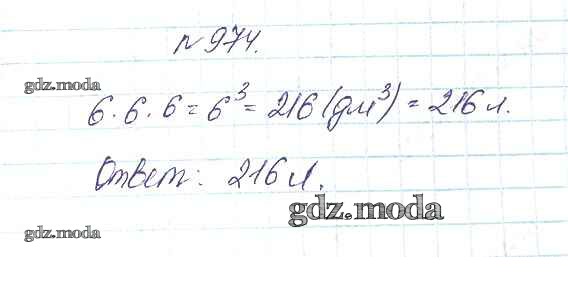 №974.
gdz.moda
6·6·6 = 6³ = 216 (дм³) = 216 л.
Ответ: 216 л.
gdz.moda
gdz.moda